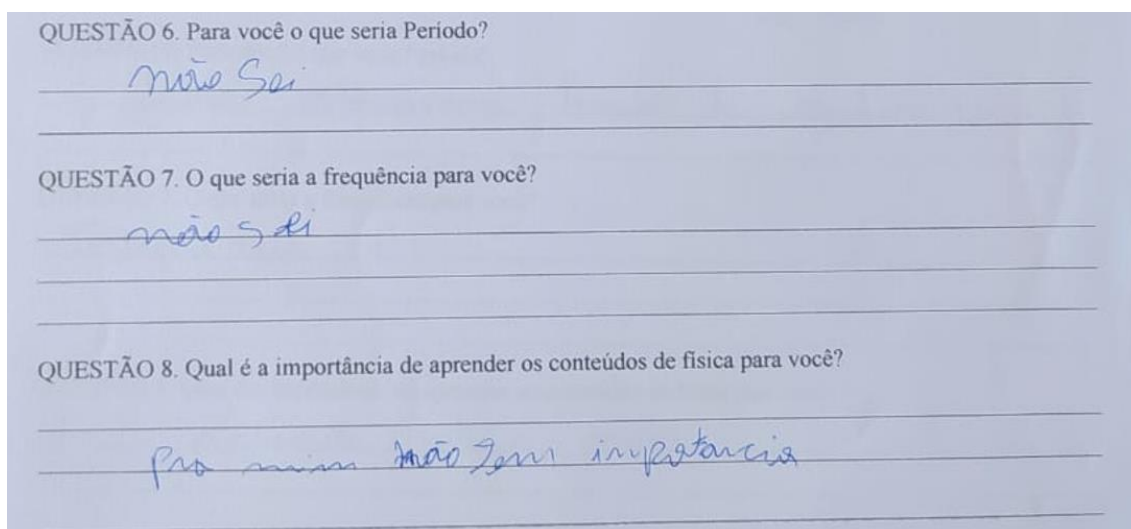 QUESTÃO 6. Para você o que seria Período?
não Sei
QUESTÃO 7. O que seria a frequência para você?
não sei
QUESTÃO 8. Qual é a importância de aprender os conteúdos de física para você?
pra mim não tem impotancia